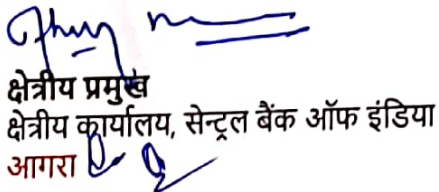 क्षेत्रीय प्रमुख
क्षेत्रीय कार्यालय, सेन्ट्रल बैंक ऑफ इंडिया
आगरा